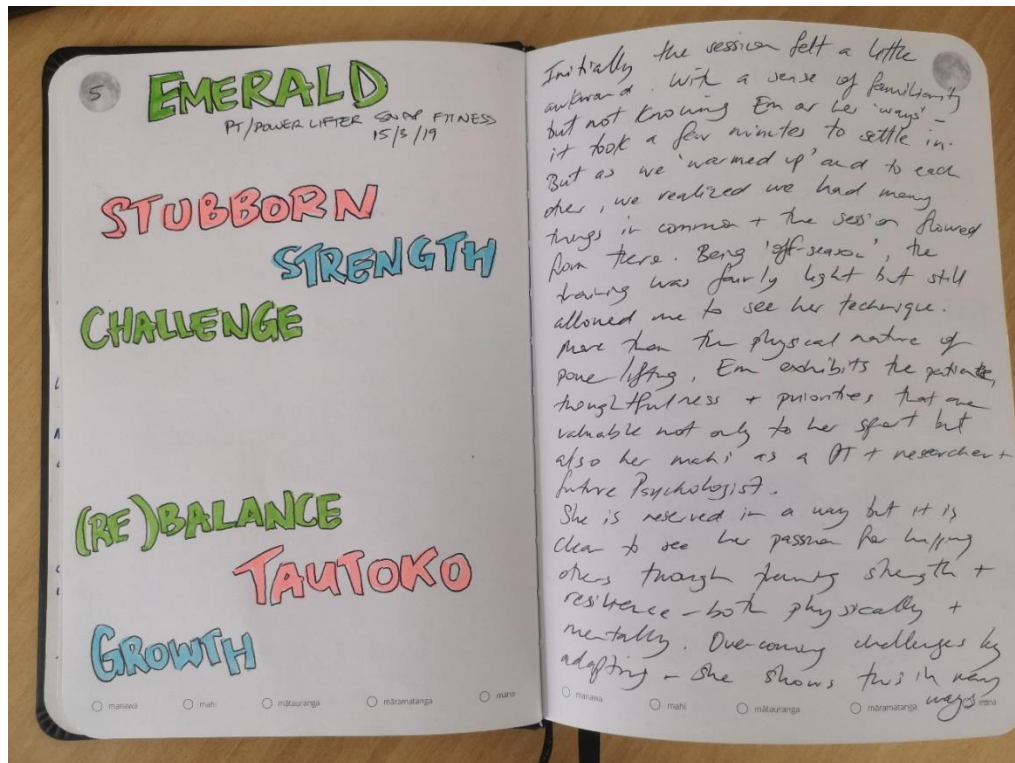 5
EMERALD
PT/POWER LIFTER SNAP FITNESS
15/3/19
STUBBORN
STRENGTH
CHALLENGE
(RE)BALANCE
TAUTOKO
GROWTH
manawa mahi mātauranga māramatanga mana
Initially the session felt a little
awkward. With a sense of familiarity
but not knowing Em or her 'ways' –
it took a few minutes to settle in.
But as we 'warmed up' and to each
other, we realized we had many
things in common + the session flowed
from there. Being 'off-season', the
training was fairly light but still
allowed me to see her technique.
More than the physical nature of
power lifting, Em exhibits the patience,
thoughtfulness + priorities that are
valuable not only to her sport but
also her mahi as a PT + researcher +
future Psychologist.
She is reserved in a way but it is
clear to see her passion for helping
others through strength +
resilience – both physically +
mentally. Overcoming challenges by
adapting – she shows this in many
ways
manawa mahi mātauranga māramatanga mana